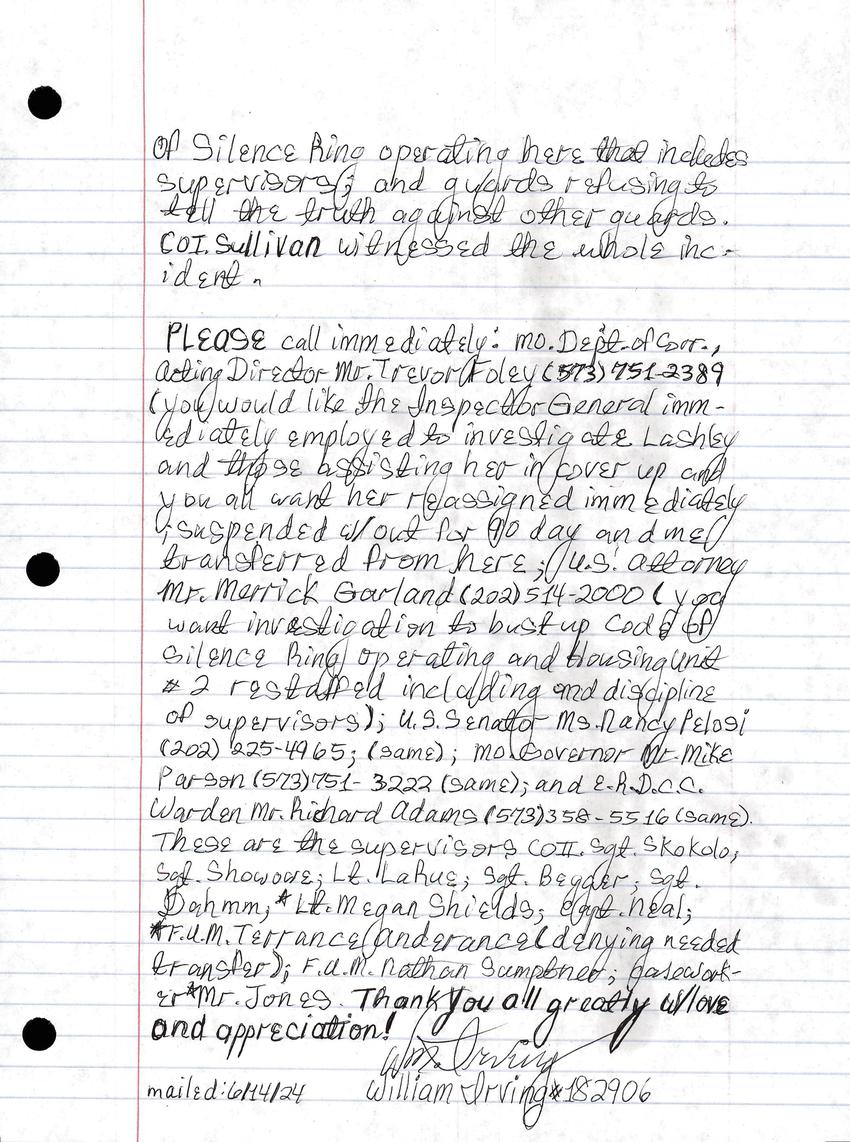 Of Silence Ring operating here that includes
supervisors; and guards refusing to
tell the truth against other guards.
COI. Sullivan witnessed the whole inc-
ident.
PLEASE call immediately: mo. Dept. of Corr.,
Acting Director Mr. Trevor Foley (573) 751-2389
(you would like the Inspector General imm-
ediately employed to investigate Lashley
and those assisting her in cover up and
you all want her reassigned immediately
; suspended w/out for 90 day and me
transferred from here; U.S. Attorney
Mr. Merrick Garland (202) 514-2000 (you
want investigation to bust up Code Of
Silence Ring operating and Housing Unit
# 2 restaffed including and discipline
of supervisors); U.S. Senator Ms. Nancy Pelosi
(202) 225-4965; (same); mo. Governor Mr. Mike
Parson (573) 751-3222 (same); and E.R.D.C.C.
Warden Mr. Richard Adams (573) 358-5516 (same).
These are the supervisors COII. Sgt. Skokolo;
Sgt. Showare; Lt. LaRue; Sgt. Begger; Sgt.
Dahmm; *Lt. Megan Shields; Capt. Neal;
*F.U.M. Terrance Anderance (denying needed
transfer); F.U.M. Nathan Sumptner; casework-
er *Mr. Jones. Thank you all greatly w/love
and appreciation!
Wm. Irving
mailed: 6/14/24 William Irving #182906